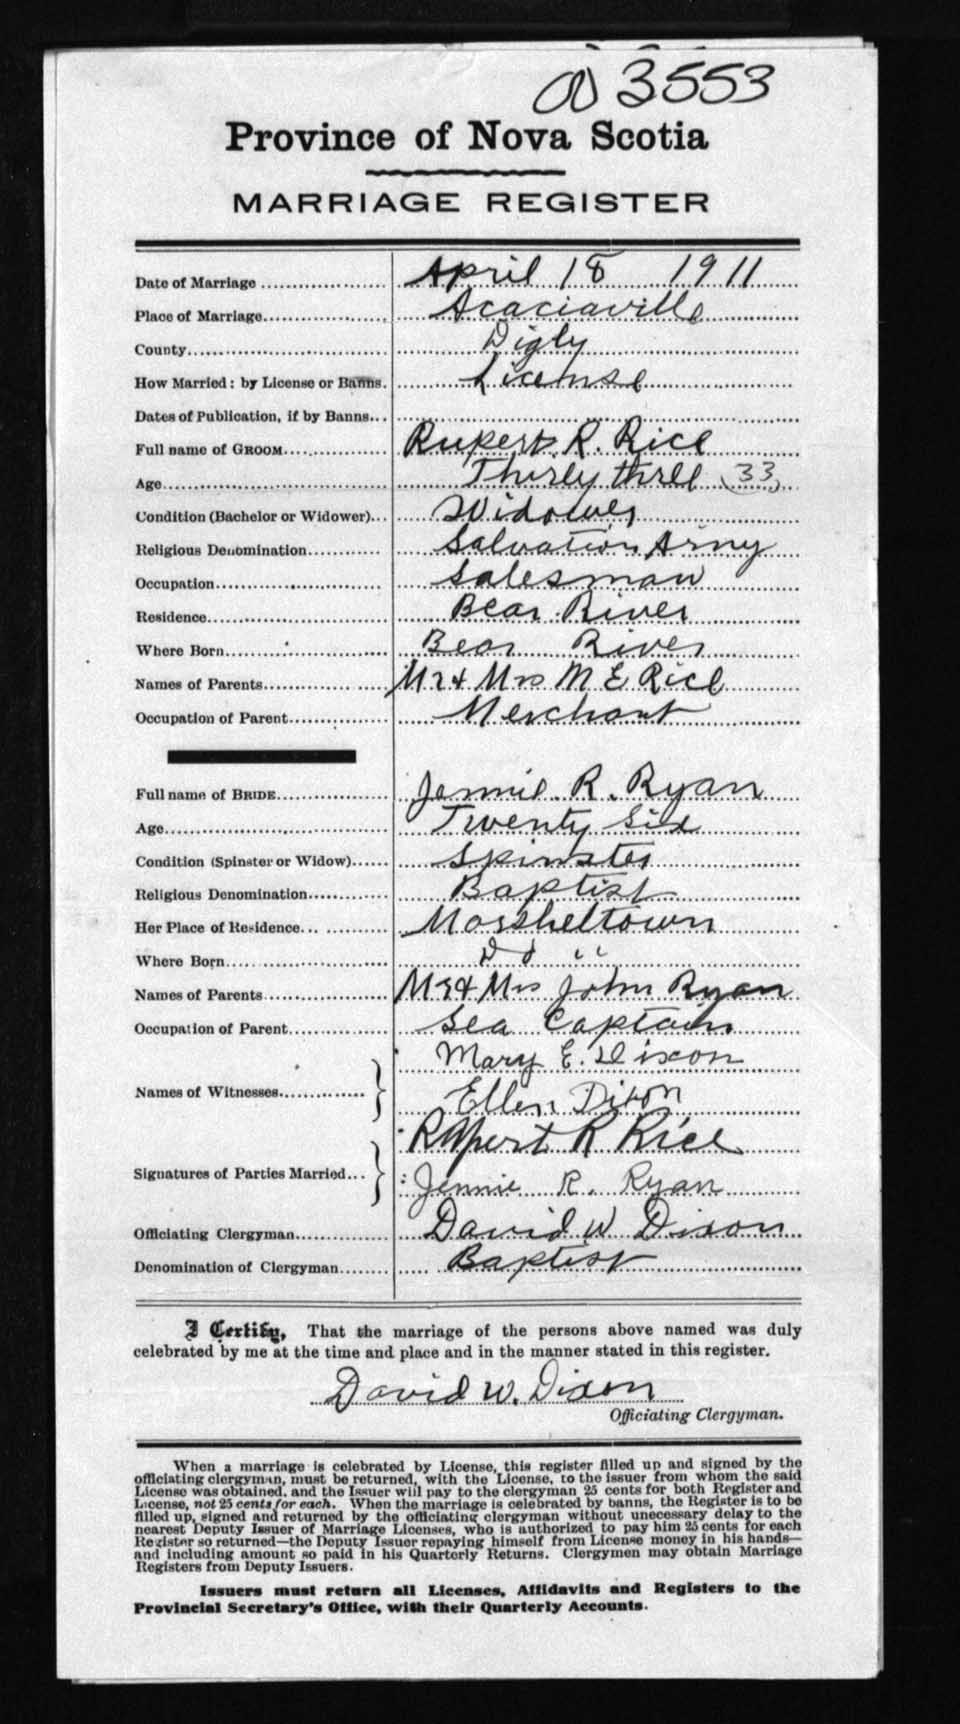 3553
Province of Nova Scotia
MARRIAGE REGISTER
Date of Marriage April 18 1911
Place of Marriage Acaciaville
County Digby
How Married: by License or Banns. License
Dates of Publication, if by Banns
Full name of GROOM Rupert R. Rice
Age Thirty three (33)
Condition (Bachelor or Widower) Widower
Religious Denomination Salvation Army
Occupation Salesman
Residence Bear River
Where Born Bear River
Names of Parents Mr & Mrs M E Rice
Occupation of Parent Merchant
Full name of BRIDE Jennie R. Ryan
Age Twenty Six
Condition (Spinster or Widow) Spinster
Religious Denomination Baptist
Her Place of Residence Marsheltown
Where Born Do "
Names of Parents Mr & Mrs John Ryan
Occupation of Parent Sea Captain
Names of Witnesses Mary E. Dixon
Ellen Dixon
Signatures of Parties Married Rupert R Rice
Jennie R. Ryan
Officiating Clergyman David W Dixon
Denomination of Clergyman Baptist
I Certify, That the marriage of the persons above named was duly
celebrated by me at the time and place and in the manner stated in this register.
David W. Dixon
Officiating Clergyman.
When a marriage is celebrated by License, this register filled up and signed by the
officiating clergyman, must be returned, with the License, to the issuer from whom the said
License was obtained, and the Issuer will pay to the clergyman 25 cents for both Register and
License, not 25 cents for each. When the marriage is celebrated by banns, the Register is to be
filled up, signed and returned by the officiating clergyman without unecessary delay to the
nearest Deputy Issuer of Marriage Licenses, who is authorized to pay him 25 cents for each
Register so returned—the Deputy Issuer repaying himself from License money in his hands—
and including amount so paid in his Quarterly Returns. Clergymen may obtain Marriage
Registers from Deputy Issuers.
Issuers must return all Licenses, Affidavits and Registers to the
Provincial Secretary's Office, with their Quarterly Accounts.